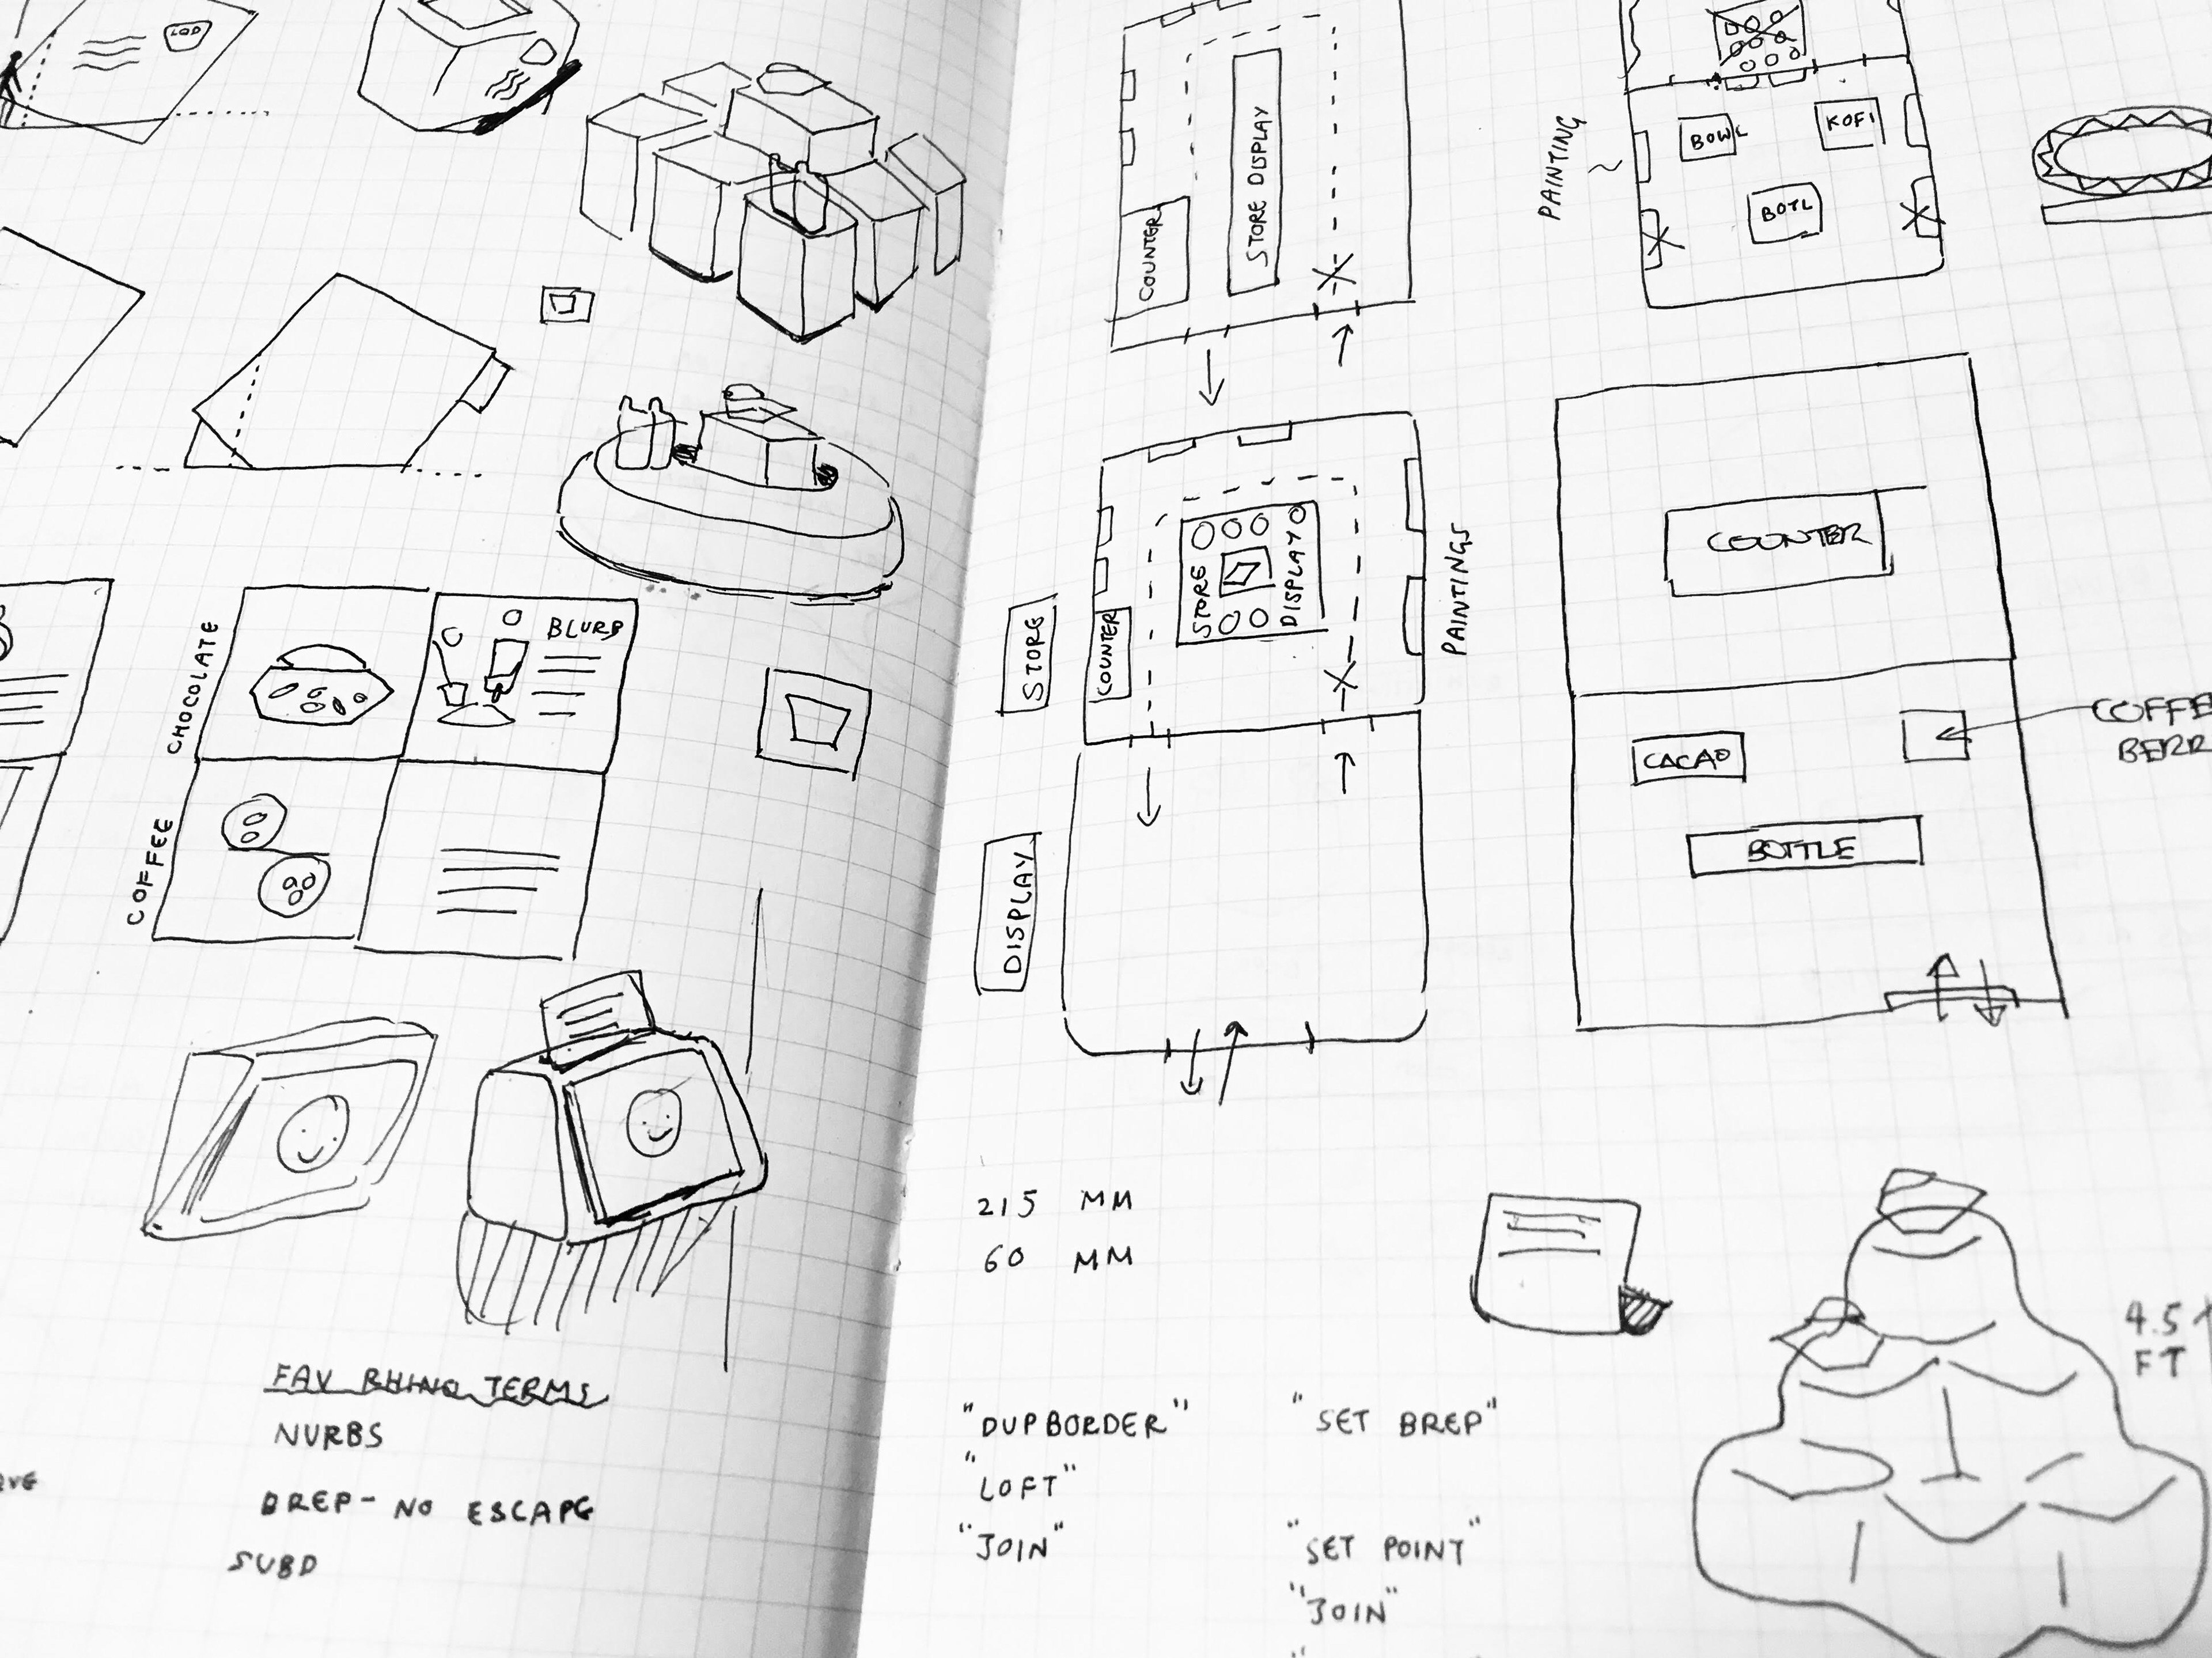 LOD
CHOCOLATE
BLURB
COFFEE
FAV RHINO TERMS
NURBS
BREP - NO ESCAPE
SUBD
STORE DISPLAY
COUNTER
PAINTING
BOWL
KOFI
BOTL
STORE
COUNTER
STORE
DISPLAY
PAINTINGS
DISPLAY
COUNTER
CACAO
COFFE
BERR
BOTTLE
215 MM
60 MM
4.5
FT
"DUPBORDER"
"LOFT"
"JOIN"
"SET BREP"
"SET POINT"
"JOIN"